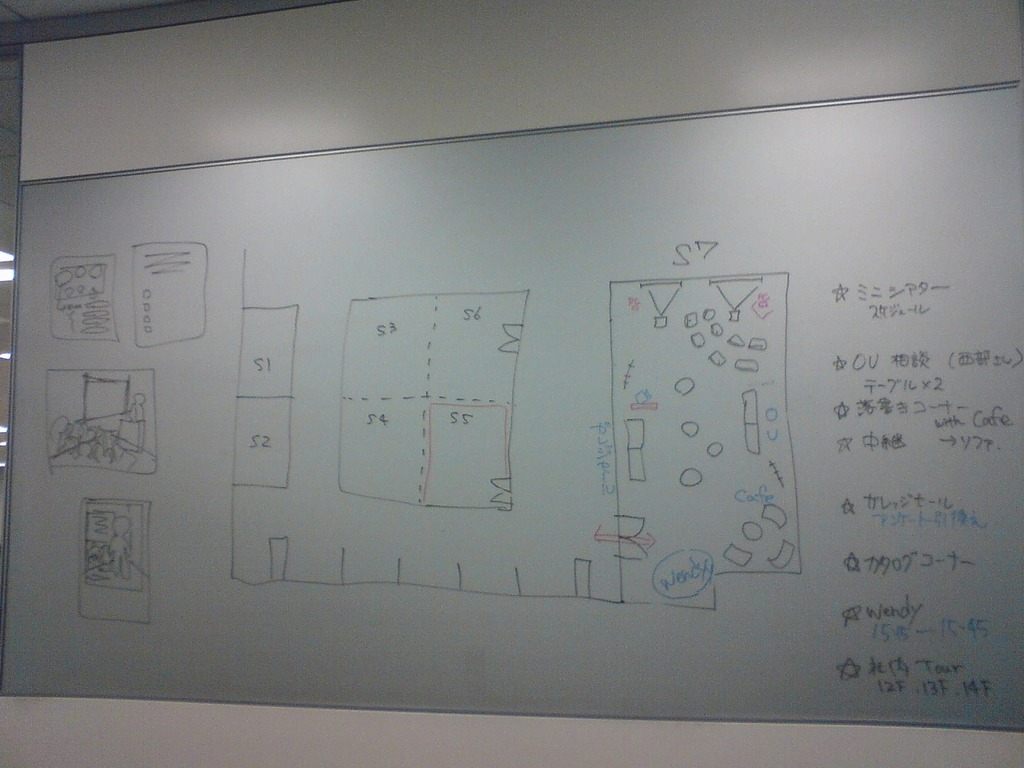 S7
S1
S2
S3
S6
S4
S5
OU
Cafe
Wendy
☆ ミニシアター
スケジュール
☆ OU 相談 (西部さん)
テーブル×2
☆ 落書きコーナー
with Cafe
☆ 中継 →ソファ.
☆ ガレッジセール
アンケート引換え
☆ カタログコーナー
☆ Wendy
15:15 – 15:45
☆ 社内 Tour
12F.13F.14F